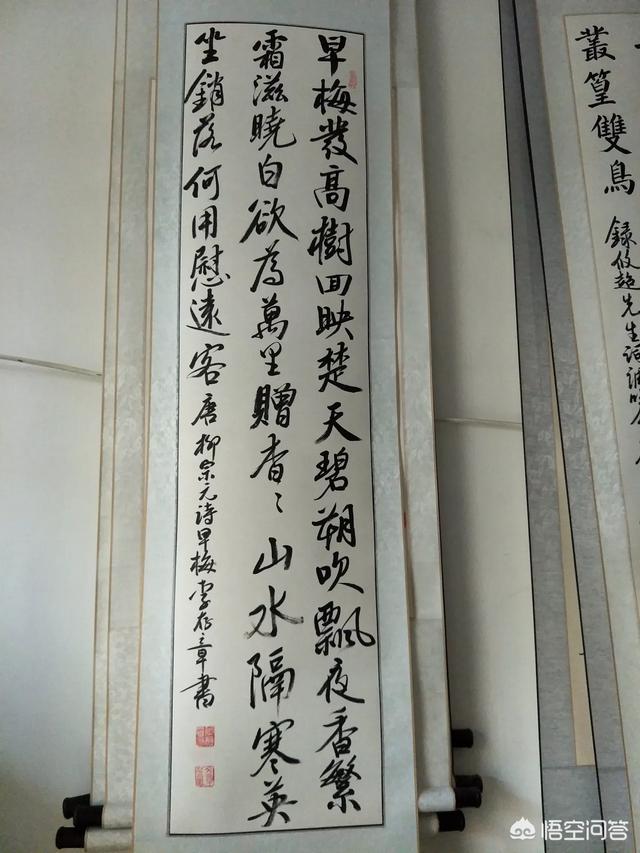 早梅發高樹回映楚天碧朔吹飄夜香繁
霜滋曉白欲為萬里贈杳〻山水隔寒英
坐銷落何用慰遠客 唐柳宗元诗早梅 李存章書
叢篁雙鳥
先生
悟空问答